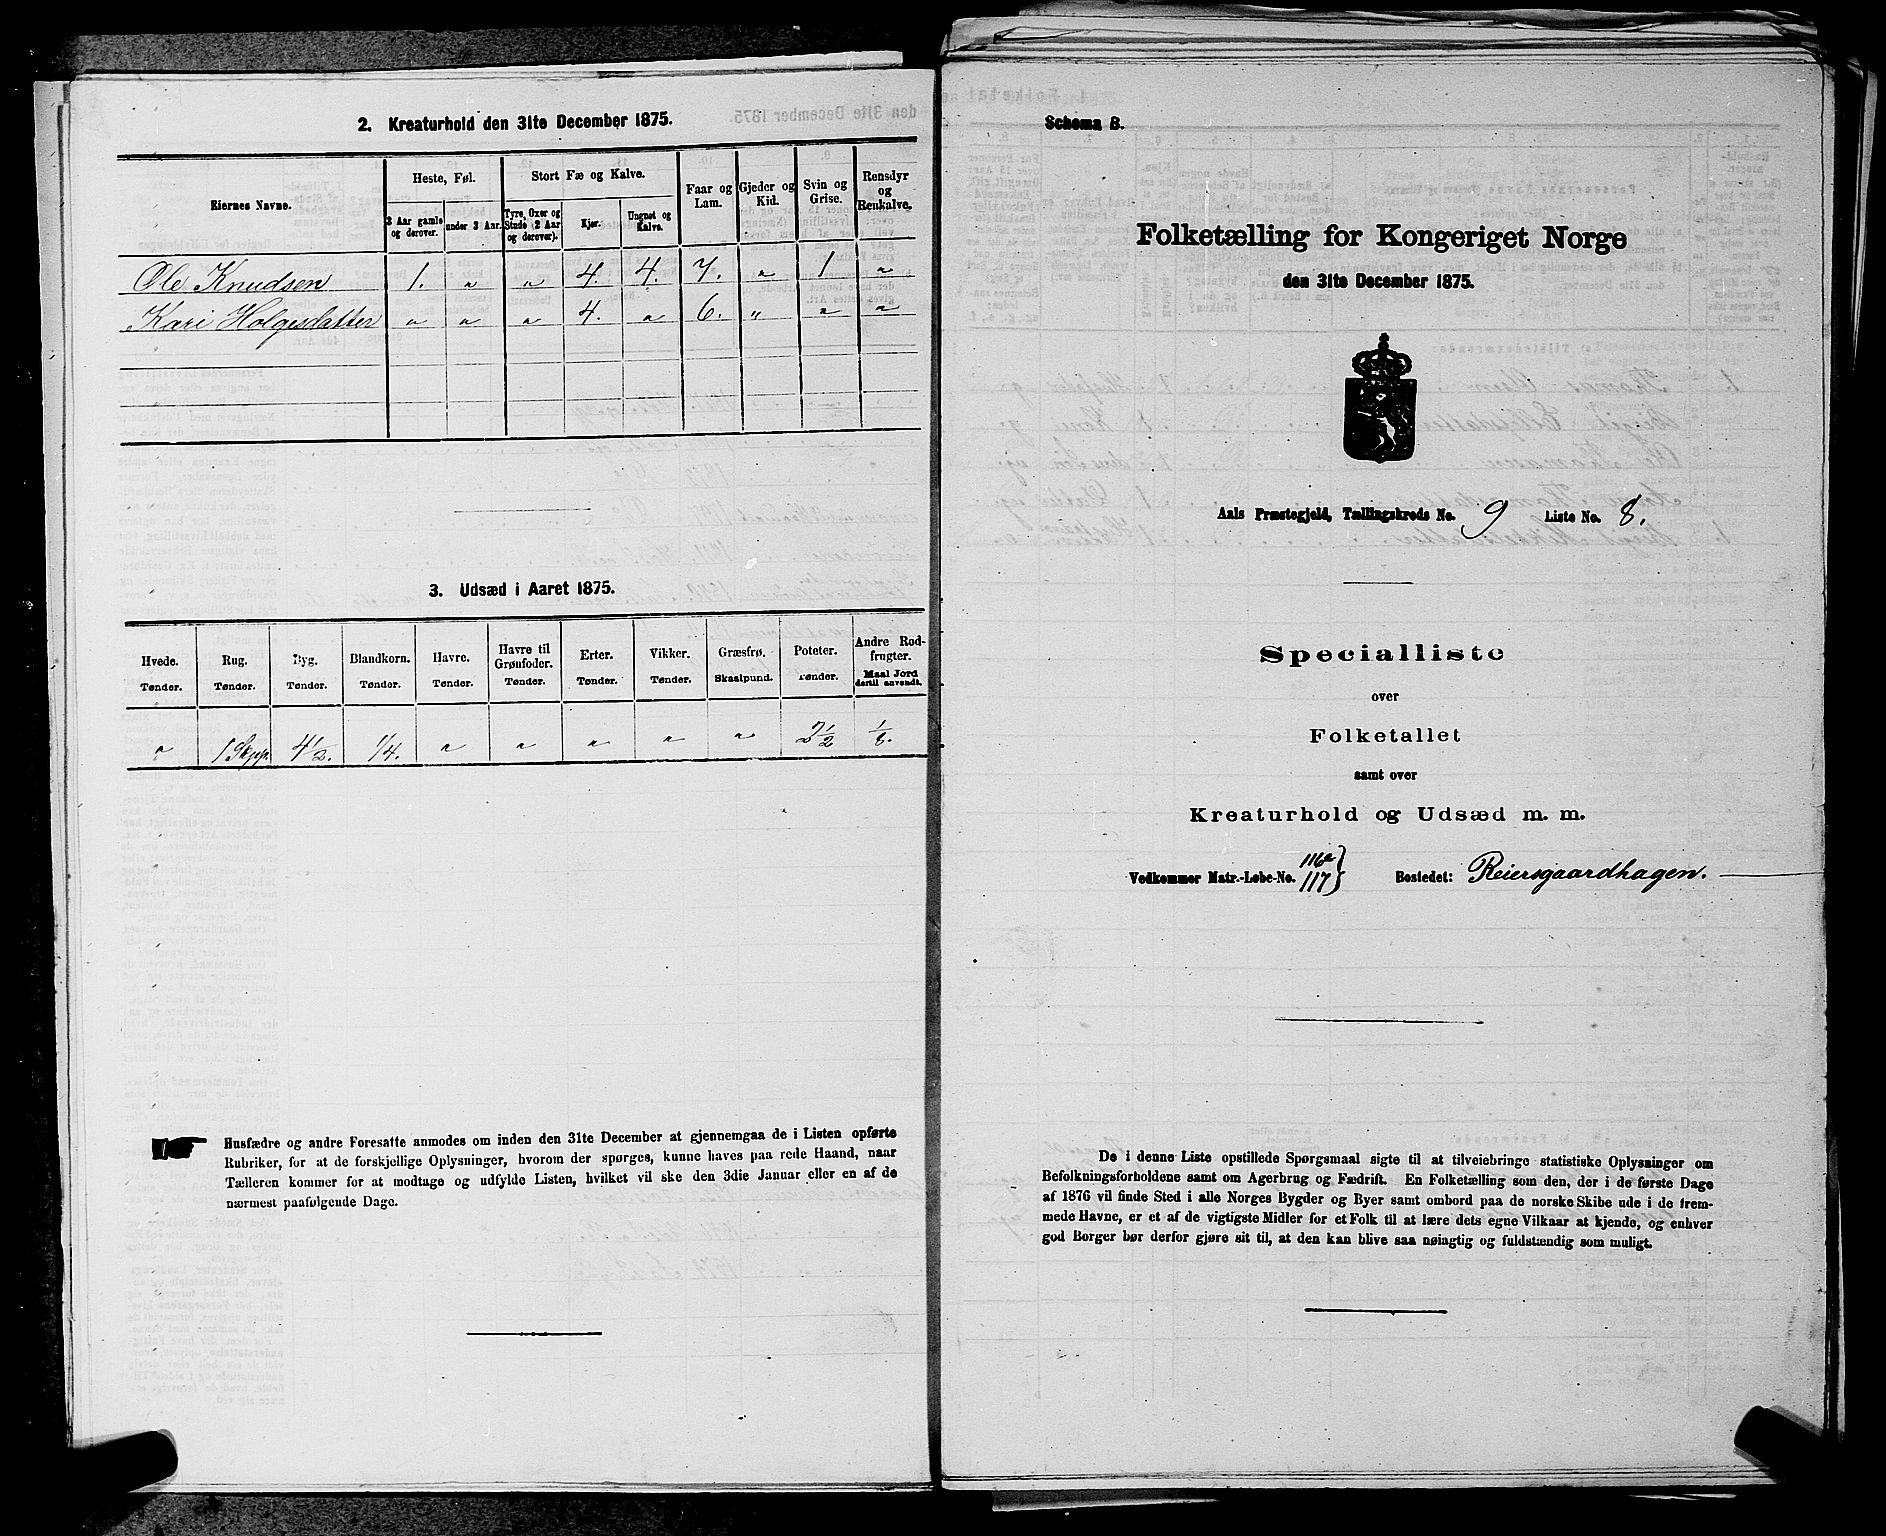 2. Kreaturhold den 31te December 1875.
Eiernes Navne.
Heste, Føl.
3 Aar gamle og derover.
under 3 Aar.
Stort Fæ og Kalve.
Tyre, Oxer og Stude (2 Aar og derover).
Kjør.
Ungnøt og Kalve.
Faar og Lam.
Gjeder og Kid.
Svin og Grise.
Rensdyr og Renkalve.
Ole Knudsen 1. " " 4. 4. 7. " 1 "
Kari Holgesdatter " " " 4. " 6. " " "
3. Udsæd i Aaret 1875.
Hvede. Rug. Byg. Blandkorn. Havre. Havre til Grønfoder. Erter. Vikker. Græsfrø. Poteter. Andre Rodfrugter.
Tønder. Tønder. Tønder. Tønder. Tønder. Tønder. Tønder. Tønder. Skaalpund. Tønder. Maal Jord dertil anvendt.
" 1 Skpp. 4 1/2. 1/4. " " " " " 2 1/2 1/8.
Husfædre og andre Foresatte anmodes om inden den 31te December at gjennemgaa de i Listen opførte
Rubriker, for at de forskjellige Oplysninger, hvorom der spørges, kunne haves paa rede Haand, naar
Tælleren kommer for at modtage og udfylde Listen, hvilket vil ske den 3die Januar eller en af de
nærmest paafølgende Dage.
Schema B.
Folketælling for Kongeriget Norge
den 31te December 1875.
Aals Præstegjeld, Tællingskreds No. 9 Liste No. 8.
Specialliste
over
Folketallet
samt over
Kreaturhold og Udsæd m. m.
Vedkommer Matr.-Løbe-No. 116a 117} Bostedet: Reiersgaardhagen.
De i denne Liste opstillede Spørgsmaal sigte til at tilveiebringe statistiske Oplysninger om
Befolkningsforholdene samt om Agerbrug og Fædrift. En Folketælling som den, der i de første Dage
af 1876 vil finde Sted i alle Norges Bygder og Byer samt ombord paa de norske Skibe ude i de frem-
mede Havne, er et af de vigtigste Midler for et Folk til at lære dets egne Vilkaar at kjende, og enhver
god Borger bør derfor gjøre sit til, at den kan blive saa nøiagtig og fuldstændig som muligt.